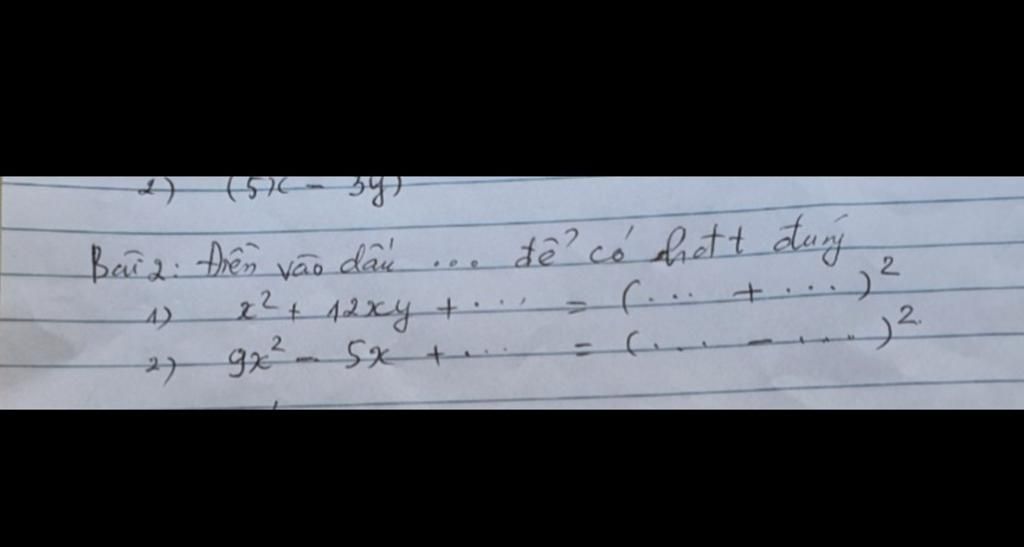 2) (5x - 3y)
Bài 2: Điền vào dấu ... để có hđtt đúng
1) x² + 12xy + .... = (... + ...)²
2) 9x² - 5x + ... = (... - ...)²